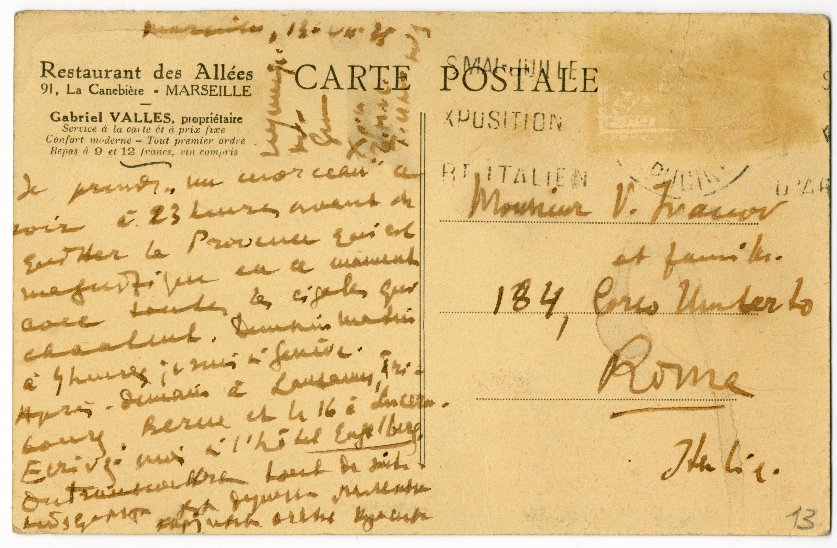 Marseille, 13
Restaurant des Allées
91, La Canebière • MARSEILLE
Gabriel VALLES, propriétaire
Service à la carte et à prix fixe
Confort moderne – Tout premier ordre
Repas à 9 et 12 francs, vin compris
CARTE POSTALE
S MAI-JUILLE
XPOSITION
RT ITALIEN
D'AR
Je prends un morceau ce
soir à 23 heures avant de
quitter la Provence qui est
magnifique en ce moment
avec toutes les cigales qui
chantent. Demain matin
à 9 heures je suis à Genève.
Après-demain à Lausanne, Fri-
bourg, Berne et le 16 à Lucerne.
Ecrivez moi à l'hôtel Engelberg.
On transmettra tout de suite.
Monsieur V. Ivanov
et famille.
184, Corso Umberto
Rome
Italie.
13